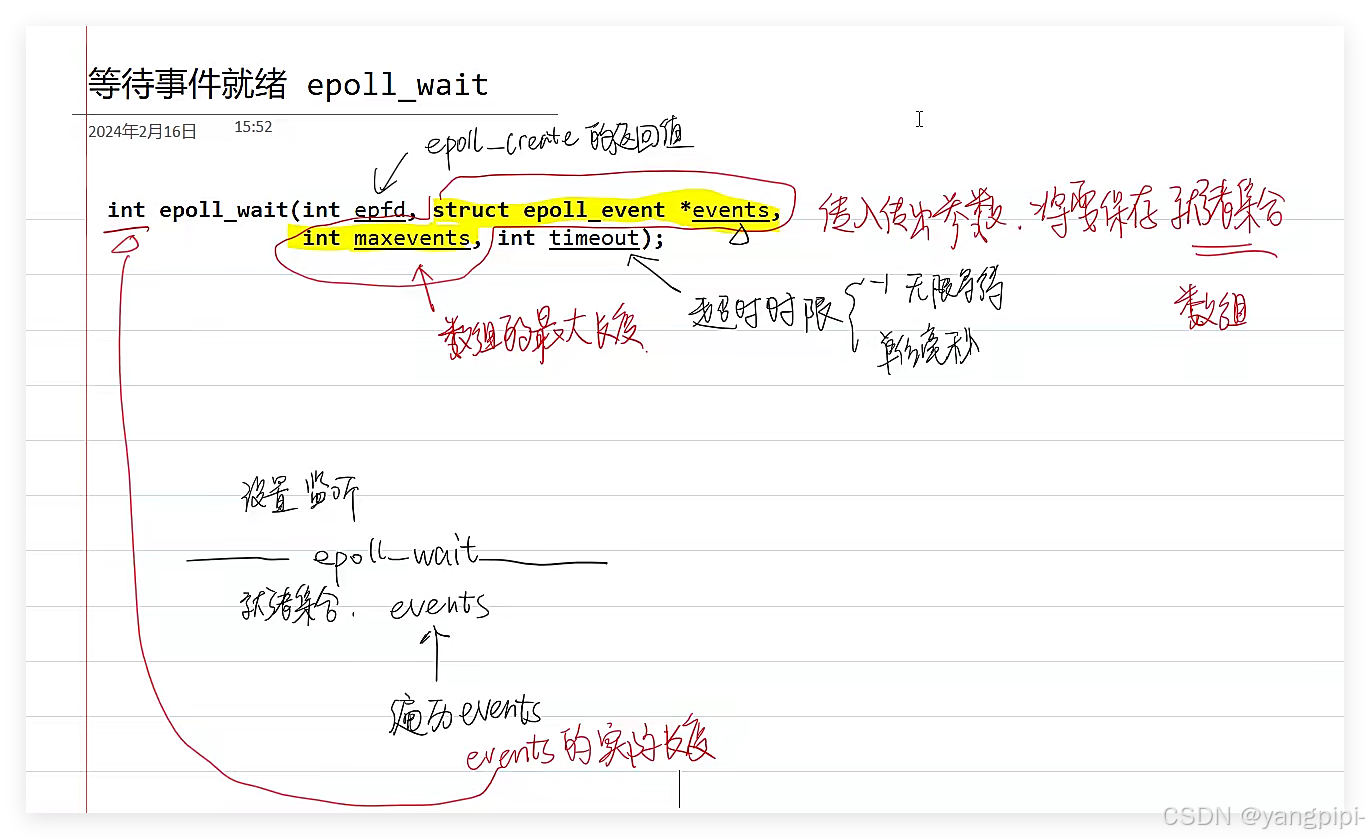 等待事件就绪 epoll_wait
2024年2月16日 15:52
epoll_create 的返回值
int epoll_wait(int epfd, struct epoll_event *events,
int maxevents, int timeout);
传入传出参数. 将要保存 就绪集合
数组
数组的最大长度.
超时时限 { -1 无限等待
单位毫秒
设置监听
epoll_wait
就绪集合. events
遍历events
events的实际长度
CSDN @yangpipi-